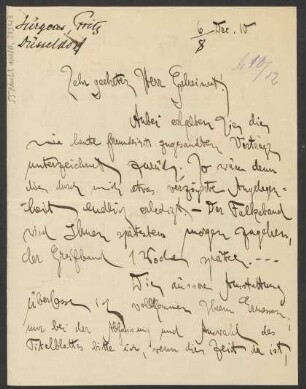 Jürgens, Fritz
Düsseldorf
6/8 Dez. 10
Sehr geehrter Herr Geheimrat!
Anbei erhalten Sie die
mir heute freundlichst zugesandten Verträge
unterzeichnet zurück. So wäre denn
die durch mich etwas verzögerte Angelegen-
heit endlich erledigt – Der Falkeband
wird Ihnen spätestens morgen zugehen,
der Greifband 1 Woche später. –––
Die äussere Ausstattung
überlasse ich vollkommen Ihrem Ermessen,
nur bei der Abfassung und Auswahl des
Titelblattes bitte ich, wenn die Zeit da ist,